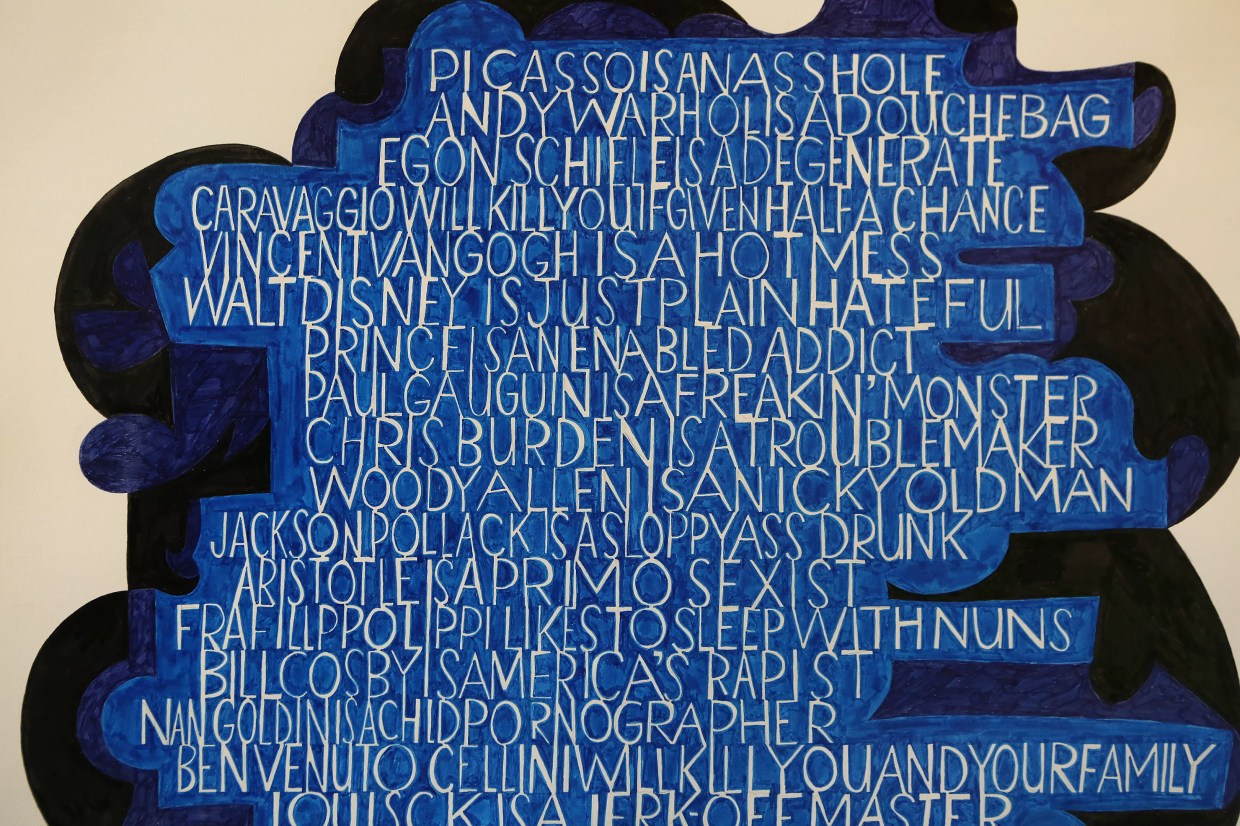 PICASSO IS AN ASSHOLE
ANDY WARHOL IS A DOUCHEBAG
EGON SCHIELE IS A DEGENERATE
CARAVAGGIO WILL KILL YOU IF GIVEN HALF A CHANCE
VINCENT VAN GOGH IS A HOT MESS
WALT DISNEY IS JUST PLAIN HATEFUL
PRINCE IS AN ENABLED ADDICT
PAUL GAUGUIN IS A FREAKIN' MONSTER
CHRIS BURDEN IS A TROUBLEMAKER
WOODY ALLEN IS AN ICKY OLD MAN
JACKSON POLLACK IS A SLOPPY ASS DRUNK
ARISTOTLE IS A PRIMO SEXIST
FRA FILIPPO LIPPI LIKES TO SLEEP WITH NUNS
BILL COSBY IS AMERICA'S RAPIST
NAN GOLDIN IS A CHILD PORNOGRAPHER
BENVENUTO CELLINI WILL KILL YOU AND YOUR FAMILY
LOUIS CK IS A JERK-OFF MASTER